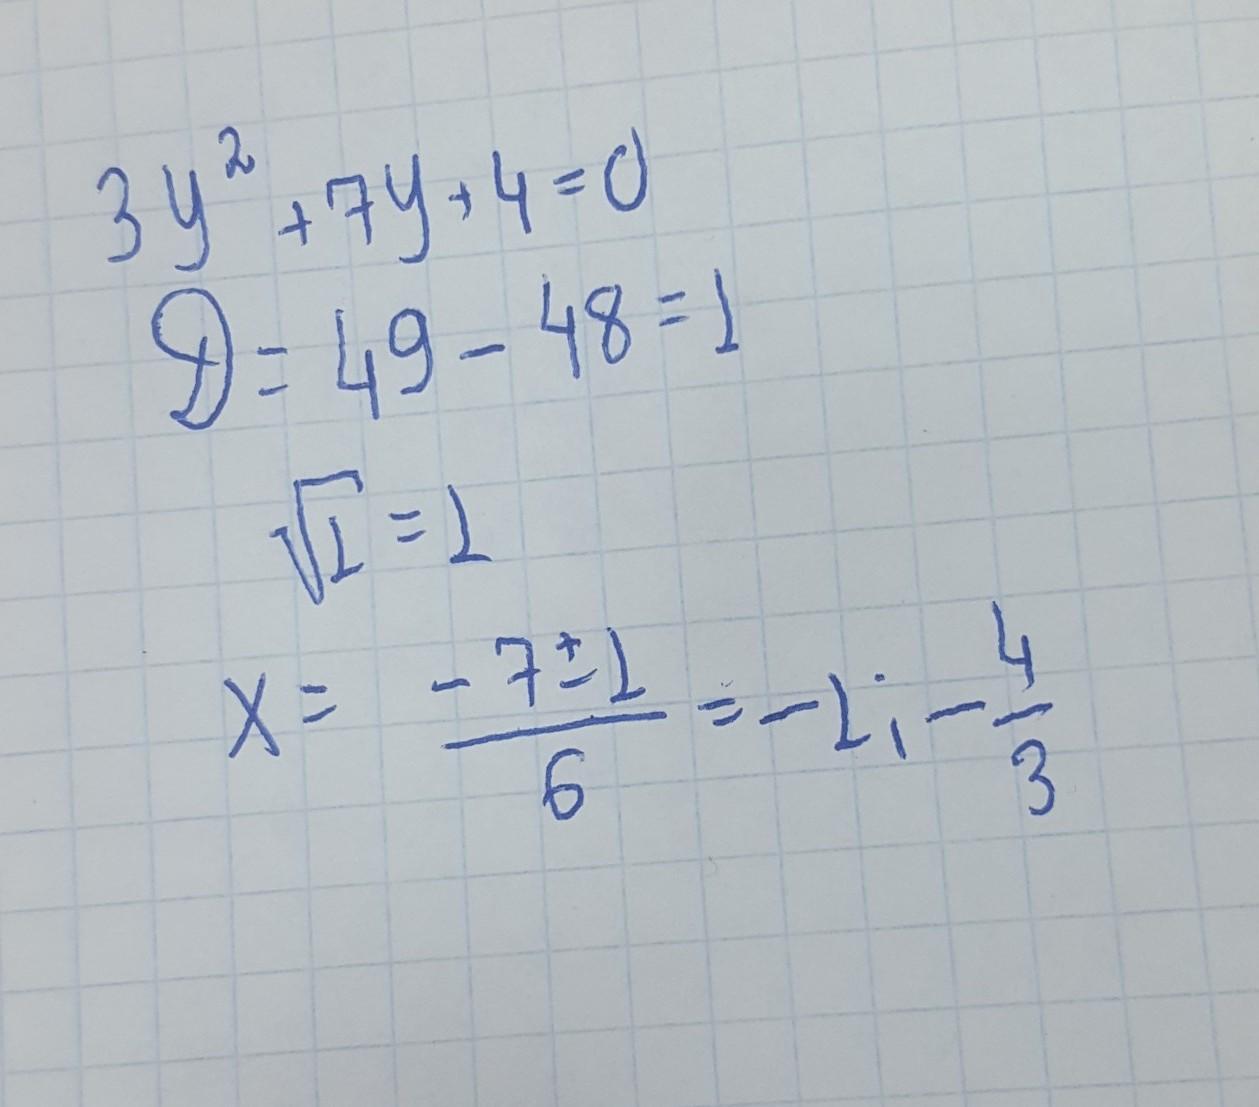 3y² + 7y + 4 = 0
D = 49 - 48 = 1
√1 = 1
x = (-7 ± 1)/6 = -1; -4/3